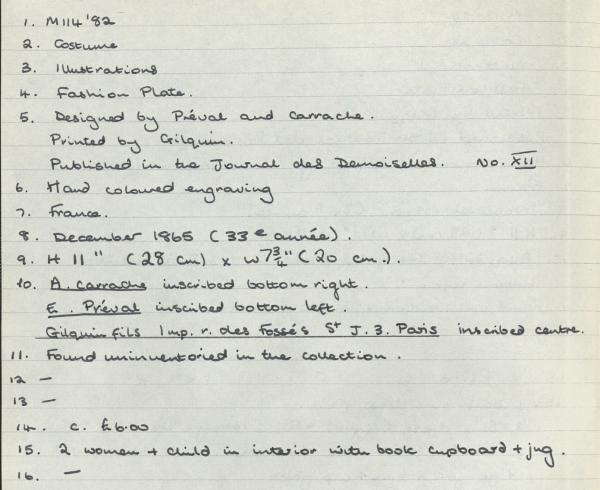 1. M114 '82
2. Costume
3. Illustrations
4. Fashion Plate.
5. Designed by Préval and Carrache.
Printed by Gilquin.
Published in the Journal des Demoiselles. No. XII
6. Hand coloured engraving
7. France.
8. December 1865 (33e année).
9. H 11" (28 cm) x W 7¾" (20 cm.).
10. A. Carrache inscribed bottom right.
E. Préval inscribed bottom left.
Gilquin fils Imp. r. des Fossés St J. 3. Paris inscribed centre.
11. Found uninventoried in the collection.
12 —
13 —
14. c. £6.00
15. 2 women + child in interior with book cupboard + jug.
16. —